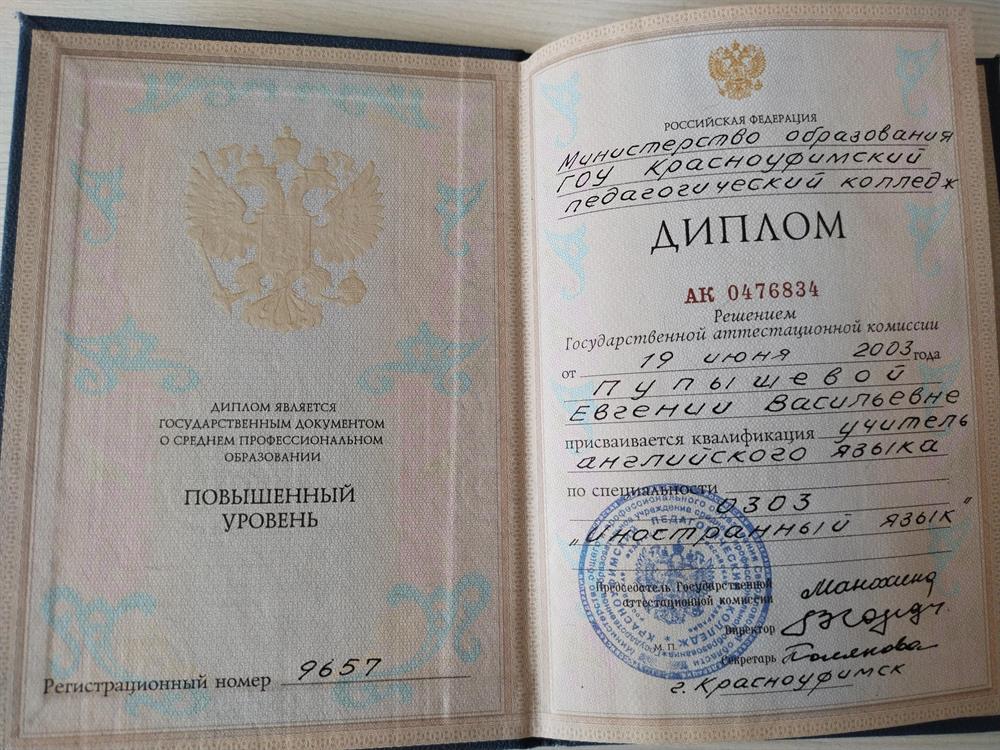 ДИПЛОМ ЯВЛЯЕТСЯ
ГОСУДАРСТВЕННЫМ ДОКУМЕНТОМ
О СРЕДНЕМ ПРОФЕССИОНАЛЬНОМ
ОБРАЗОВАНИИ
ПОВЫШЕННЫЙ
УРОВЕНЬ
Регистрационный номер 9657
РОССИЙСКАЯ ФЕДЕРАЦИЯ
Министерство образования
ГОУ Красноуфимский
педагогический колледж
ДИПЛОМ
АК 0476834
Решением
Государственной аттестационной комиссии
от 19 июня 2003 года
Пупышевой
Евгении Васильевне
присваивается квалификация учитель
английского языка
по специальности
0303
„Иностранный язык"
Председатель Государственной
аттестационной комиссии
Директор
М. П.
Секретарь
г. Красноуфимск